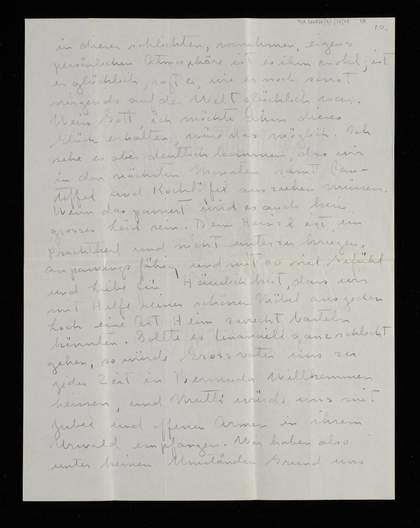 in dieser schlichten, vornehmen, eigens
persönlichen Atmosphäre ist es ihm wohl, ist
er glücklich, sagt er, wie er noch sonst
nirgends auf der Welt glücklich war.
Mein Gott, ich möchte ihm dieses
Glück erhalten, wäre das möglich. Ich
sehe es aber deutlich kommen, dass wir
in den nächsten Monaten samt Pan-
toffel und Kochlöffel ausziehen müssen.
Wenn das passiert wird es auch kein
grosses Leid sein. Denn Heinz ist ein
Prachtkerl und nicht unterzukriegen,
anpassungsfähig und mit so viel Gefühl
und Liebe für Häuslichkeit, dass wir
mit Hilfe meiner schönen Möbel aus jedem
Loch eine Art Heim zurecht basteln
könnten. Sollte es finanziell ganz schlecht
gehen, so würde Grossvater uns zu
jeder Zeit in Bermuda Willkommen
heissen, und Mutti würde uns mit
Jubel und offenen Armen in ihrem
Urwald empfangen. Wir haben also
unter keinen Umständen Grund uns